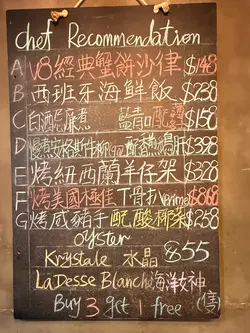 Chef Recommendation
A V8經典蟹餅沙律 $148
B 西班牙海鮮飯 $238
C 白酒 煮 藍青口 配薯 $158
D 慢煮安格斯牛柳 配香煎鴨肝 $398
E 烤紐西蘭羊仔架 $328
F 烤美國極佳T骨扒 prime $868
G 烤咸豬手配酸椰菜 $258
oyster
Krystale 水晶 $55
LaDesse Blanche 海洋女神
Buy 3 get 1 free